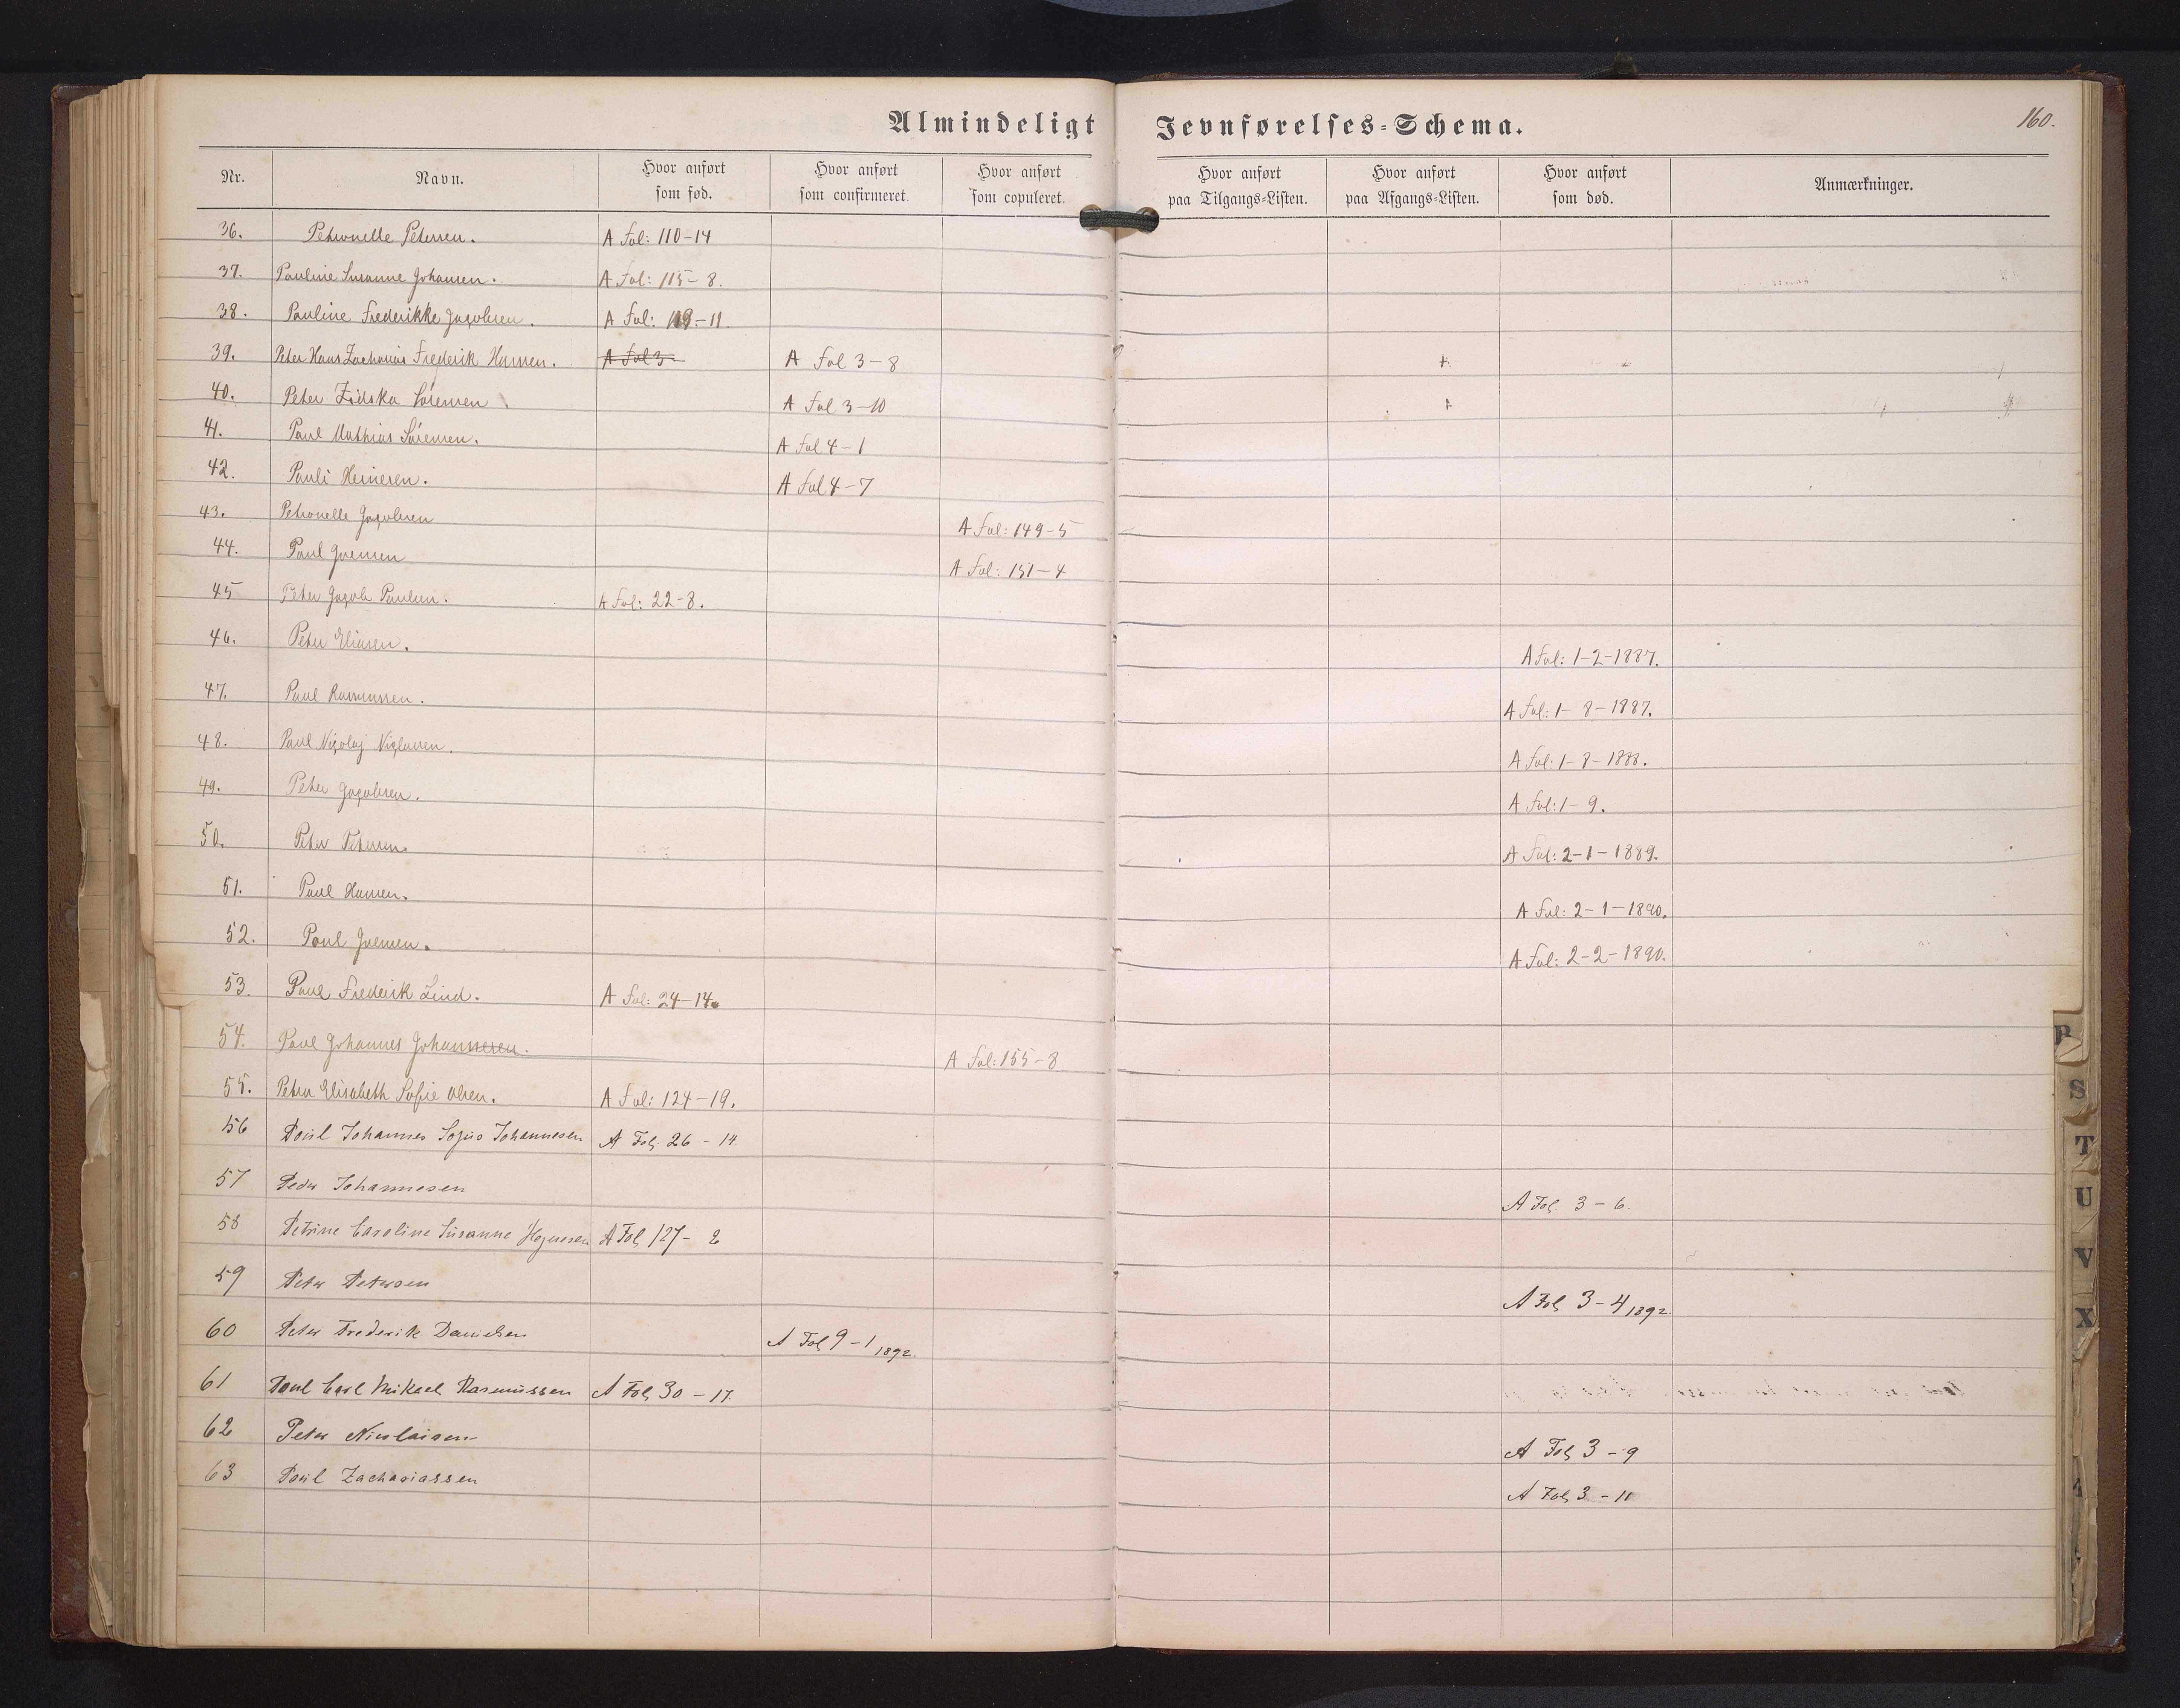 Almindeligt Jevnførelses-Schema.
160.
Nr. Navn. Hvor anført som fød. Hvor anført som confirmeret. Hvor anført som copuleret. Hvor anført paa Tilgangs-Listen. Hvor anført paa Afgangs-Listen. Hvor anført som død. Anmærkninger.
36. Petronelle Petersen. A Fol: 110-14
37. Pauline Susanne Johansen. A Fol: 115-8.
38. Pauline Frederikke Jacobsen. A Fol: 119-11.
39. Peter Hans Zacharias Frederik Hansen. A Fol 3- A Fol 3-8
40. Peter Zidska Sörensen A Fol 3-10
41. Paul Mathias Sörensen. A Fol 4-1
42. Pauli Heinesen. A Fol 4-7
43. Petronelle Jacobsen A Fol: 149-5
44. Paul Joensen A Fol: 151-4
45 Peter Jacob Paulsen. A Fol: 22-8.
46. Peter Eliasen. A Fol: 1-2-1887.
47. Paul Rasmussen. A Fol: 1-8-1887.
48. Paul Nicolaj Niclasen. A Fol: 1-8-1888.
49. Peter Jacobsen. A Fol: 1-9.
50. Peter Petersen A Fol: 2-1-1889.
51. Paul Hansen. A Fol: 2-1-1890.
52. Paul Joensen. A Fol: 2-2-1890.
53. Paul Frederik Lind. A Fol: 24-14.
54. Paul Johannes Johannesen. A Fol: 155-8
55. Petra Elisabeth Sofie Olsen. A Fol: 124-19.
56 Poul Johannes Sofus Johannesen A Fol. 26-14.
57 Peder Johannesen A Fol. 3-6.
58 Petrine Caroline Susanne Hognesen A Fol 127-2
59 Peter Petersen A Fol 3-4 1892.
60 Peter Frederik Danielsen A Fol 9-1 1892.
61 Poul Carl Mikael Rasmussen A Fol 30-17.
62 Peter Nicolaisen A Fol 3-9
63 Poul Zachariassen A Fol 3-11
P
S
T
U
V
X